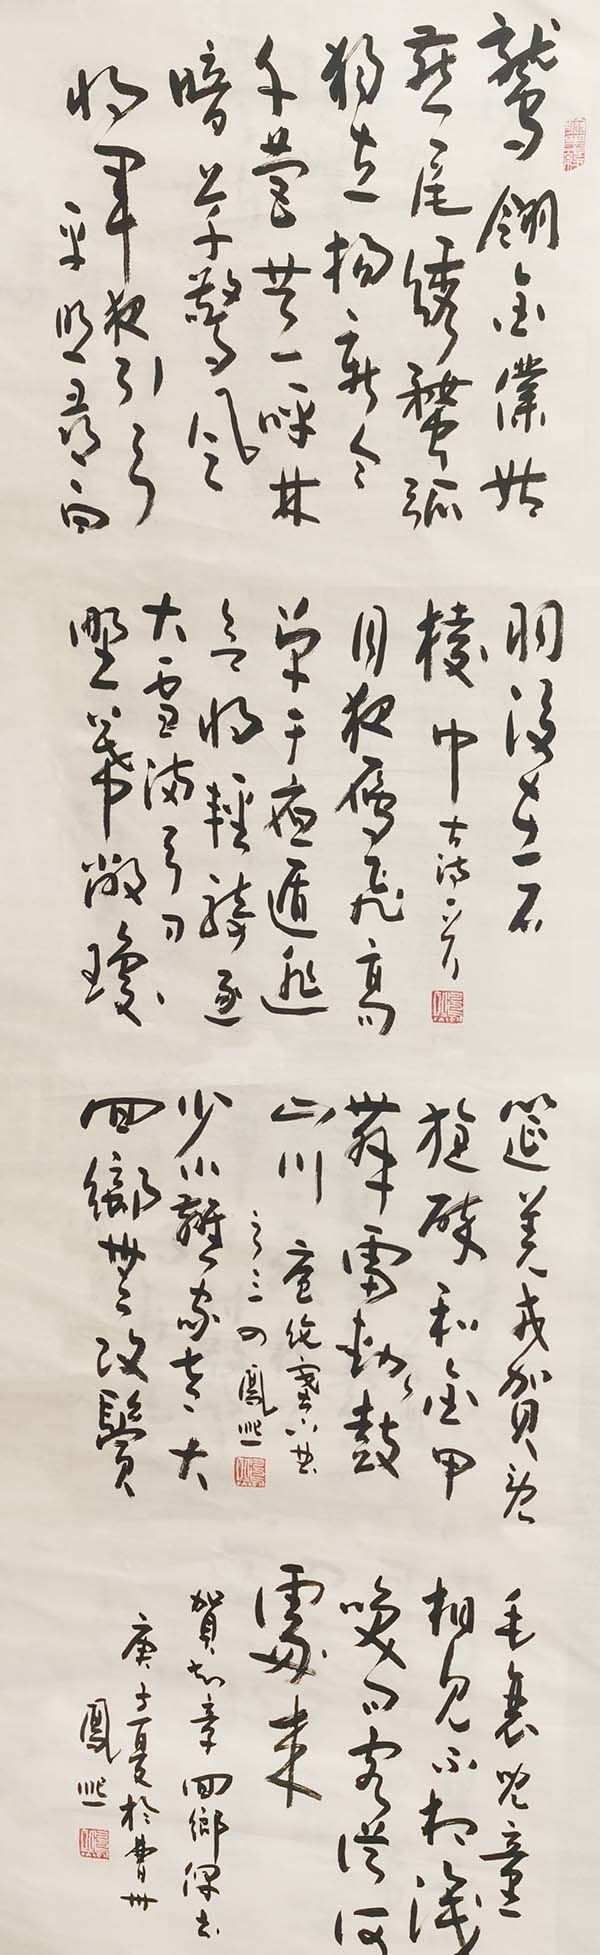 鷲翎金僕姑
燕尾繡蝥弧
獨立揚新令
千營共一呼林
暗草驚風
將軍夜引弓
平明尋白
羽沒在石
棱中 古詩一首
月夜雁飛高
單于夜遁逃
欲將輕騎逐
大雪滿弓刀
野幕敞瓊
筵羌戎賀勞
旋醉和金甲
舞雷動鼓
山川 盧綸塞下曲
之三四 鳳熙
少小離家老大
回鄉無改鬢
毛衰兒童
相見不相識
笑問客從何
處來
賀知章回鄉偶書
庚子夏於曹州
鳳熙